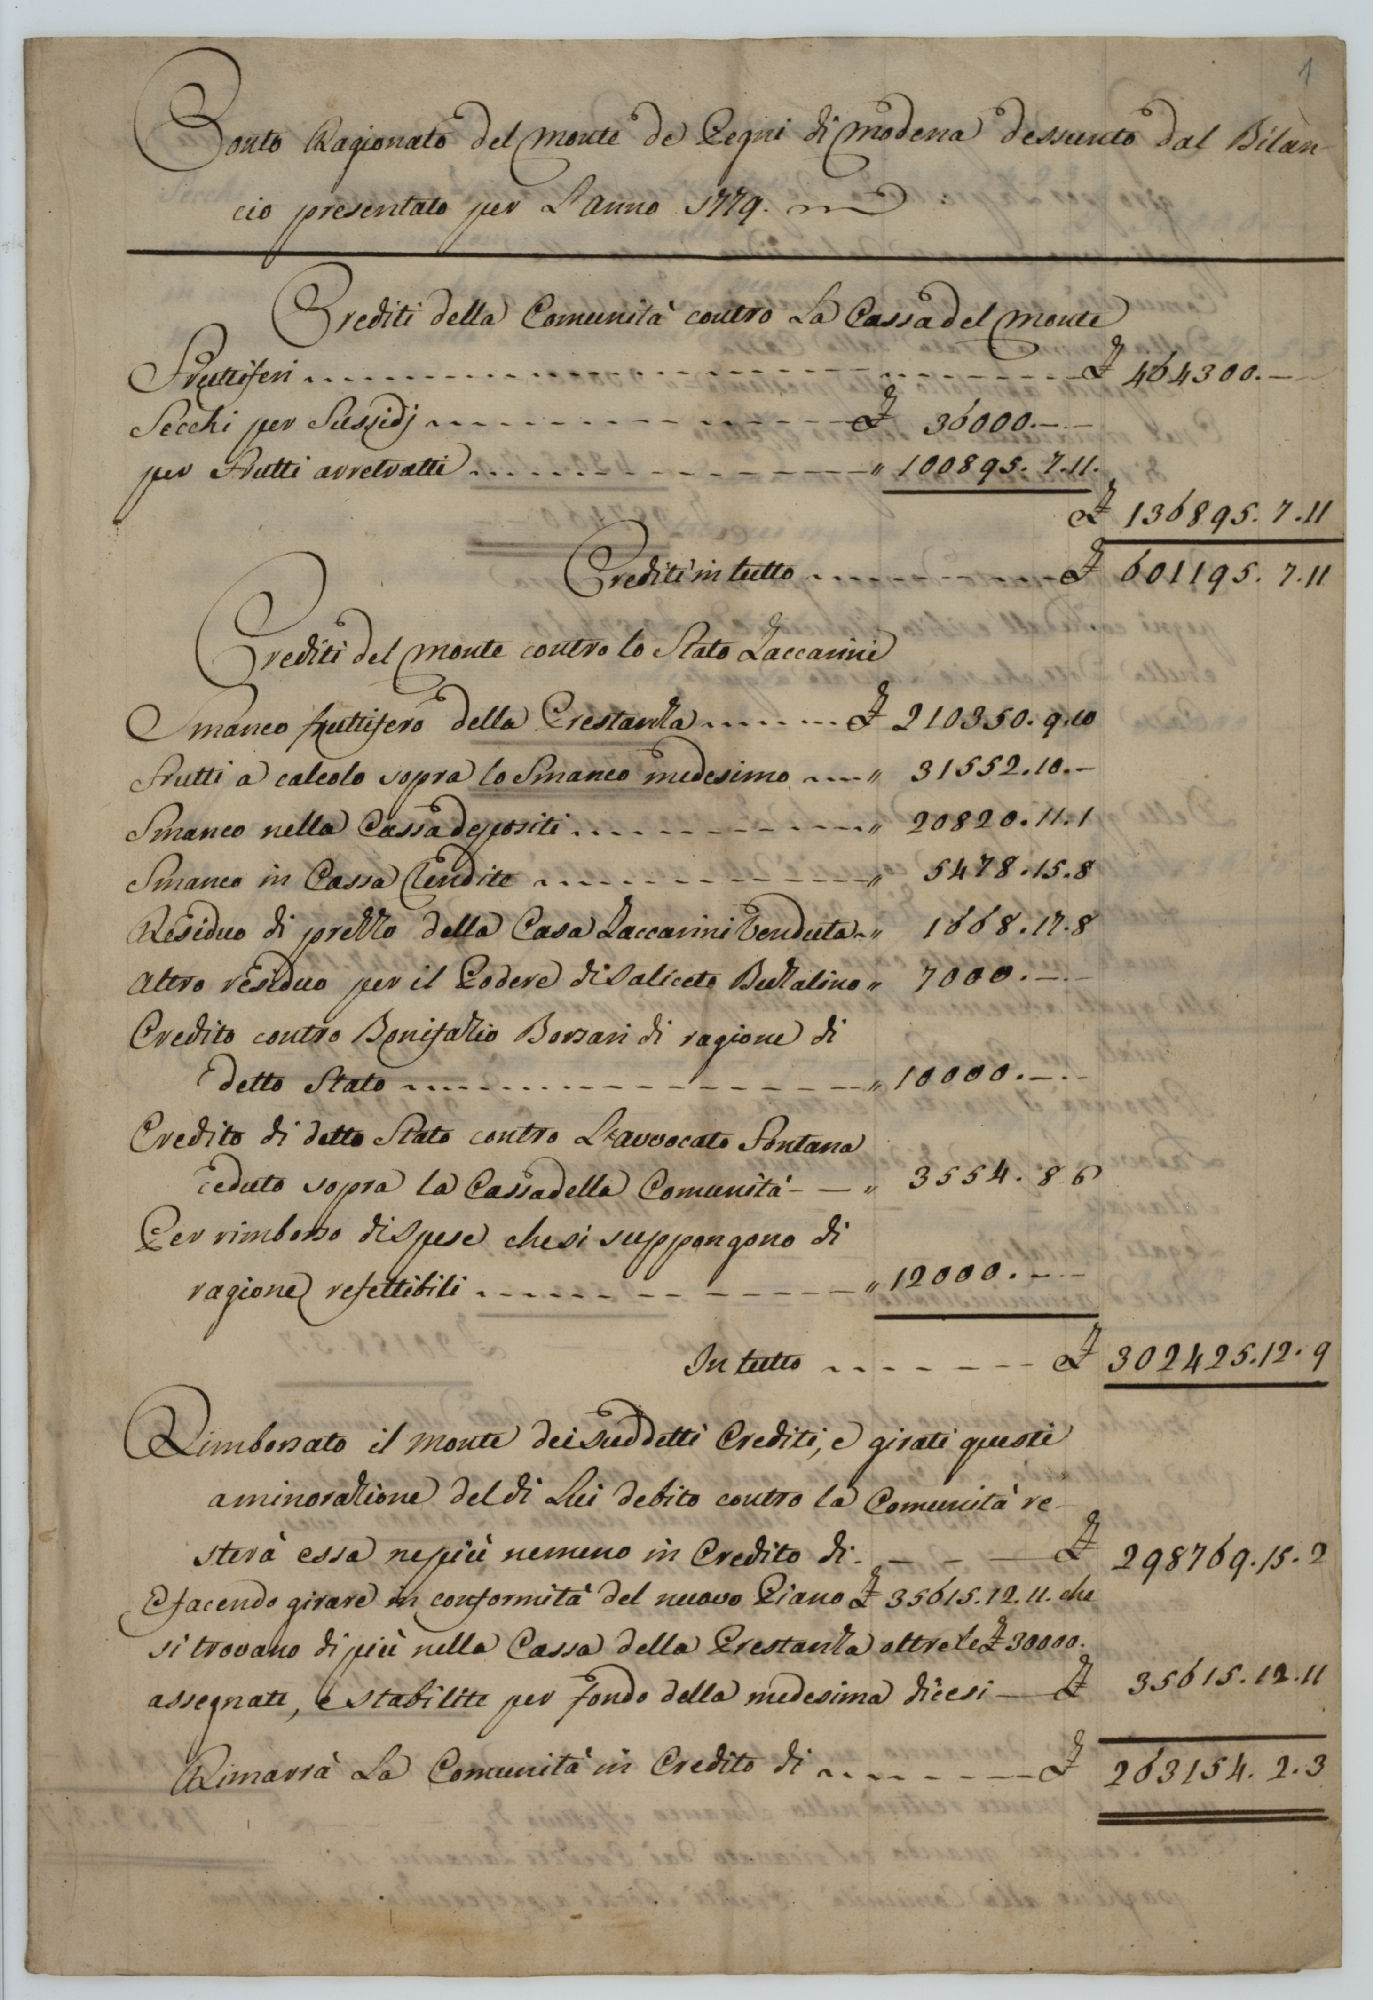 1
Conto Ragionato del Monte de Pegni di Modena dessunto dal Bilan-
cio presentato per L'anno 1779.
Crediti della Comunità contro La Cassa del Monte
Fruttiferi £ 464300.--
Secchi per Sussidj £ 36000.--
per Frutti arretratti " 100895.7.11.
£ 136895.7.11
Crediti in tutto £ 601195.7.11
Crediti del Monte contro lo Stato Zaccarini
Smanco fruttifero della Prestanza £ 210350.9.10
Frutti a calcolo sopra lo Smanco medesimo " 31552.10.-
Smanco nella Cassa depositi " 20820.11.1
Smanco in Cassa Rendite " 5478.15.8
Residuo di prezzo della Casa Zaccarini Venduta " 1668.17.8
Altro residuo per il Podere di Saliceto Buzalino " 7000.--
Credito contro Bonifazio Borsari di ragione di
detto Stato " 10000.--
Credito di detto Stato contro L'avvocato Fontana
ceduto sopra la Cassa della Comunità " 3554.8 6
Per rimborso di Spese che si suppongono di
ragione refettibili " 12000.--
In tutto £ 302425.12.9
Rimborsato il Monte dei suddetti Crediti, e girati questi
a minorazione del di Lui debito contro la Comunità re-
sterà essa ne più ne meno in Credito di £ 298769.15.2
E facendo girare in conformità del nuovo Piano £ 35615.12.11. che
si trovano di più nella Cassa della Prestanza oltre le £ 30000.
assegnate, e stabilite per fondo della medesima dicesi £ 35615.12.11
Rimarrà La Comunità in Credito di £ 263154.2.3